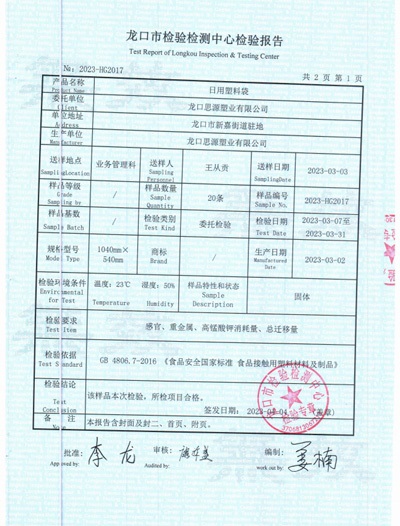 龙口市检验检测中心检验报告
Test Report of Longkou Inspection & Testing Center
№: 2023-HG2017
共 2 页 第 1 页
产品名称 日用塑料袋
Product Name
委托单位 龙口思源塑业有限公司
Client
单位地址 龙口市新嘉街道驻地
Address
生产单位 龙口思源塑业有限公司
Manufacturer
送样地点 业务管理科 送样人 王从贵 送样日期 2023-03-03
SamplingLocation Sampling Personnel SamplingDate
样品等级 / 样品数量 20条 样品编号 2023-HG2017
Grade Sampling by Sample Quantity Sample No.
样品基数 / 检验类别 委托检验 检验日期 2023-03-07至
Sample Batch Test Kind Test Date 2023-03-31
规格型号 1040mm× 商标 / 生产日期 2023-03-02
Model Type 540mm Brand Manufactured Date
检验环境条件 温度：23℃ 湿度：50% 样品特性和状态 固体
Environmental for Test Temperature Humidity Sample Description
检验要求 感官、重金属、高锰酸钾消耗量、总迁移量
Test Item
检验依据 GB 4806.7-2016 《食品安全国家标准 食品接触用塑料材料及制品》
Test Standard
检验结论 该样品本次检验，所检项目合格。
Test Conclusion 签发日期： 2023-04-04 （盖章）
备 注 本报告含封面及封二、首页、附页。
Note
批准： 李龙 审核： 编制： 姜楠
Approved by: Audited by: work out by:
龙口市检验检测中心
检验专章